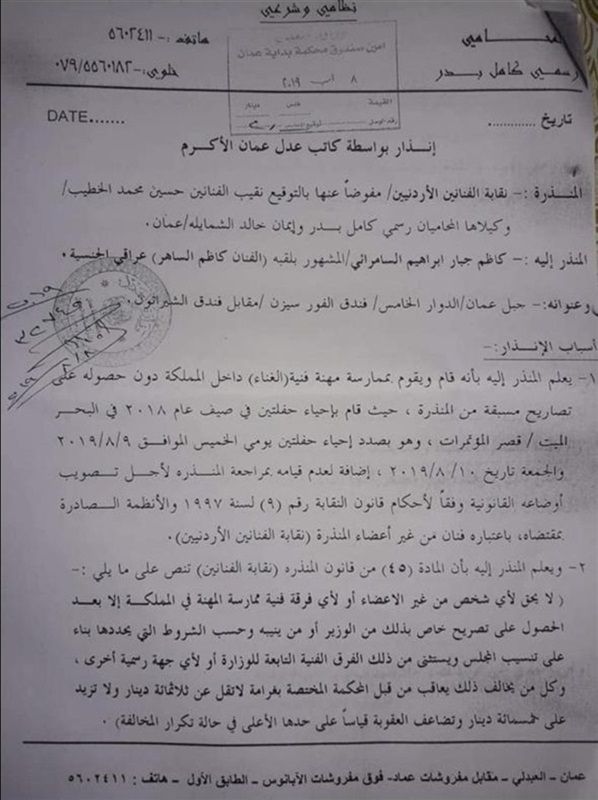 نظاميي وشرعيي
المحاميي
هاتف :- ٥٦٠٢٤١١
رسمي كامل بدر
خلوي:- ٠٧٩/٥٥٦٠١٨٢
امين صندوق محكمة بداية عمان
٨ آب ٢٠١٩
القيمة فلس دينار
رقم الوصل
توقيع
تاريخ ............
DATE.......
إنذار بواسطة كاتب عدل عمان الأكرم
المنذرة :- نقابة الفنانين الأردنيين/ مفوضاً عنها بالتوقيع نقيب الفنانين حسين محمد الخطيب/
وكيلاها المحاميان رسمي كامل بدر وإيمان خالد الشمايله/عمان.
المنذر إليه :- كاظم جبار ابراهيم السامرائي/المشهور بلقبه (الفنان كاظم الساهر) عراقي الجنسية .
وعنوانه:- جبل عمان/الدوار الخامس/ فندق الفور سيزن /مقابل فندق الشيراتون.
أسباب الإنذار:-
١- يعلم المنذر إليه بأنه قام ويقوم بممارسة مهنة فنية(الغناء) داخل المملكة دون حصوله على
تصاريح مسبقة من المنذرة ، حيث قام بإحياء حفلتين في صيف عام ٢٠١٨ في البحر
الميت / قصر المؤتمرات ، وهو بصدد إحياء حفلتين يومي الخميس الموافق ٢٠١٩/٨/٩
والجمعة تاريخ ٢٠١٩/٨/١٠ ، إضافة لعدم قيامه بمراجعة المنذره لأجل تصويب
أوضاعه القانونية وفقاً لأحكام قانون النقابة رقم (٩) لسنة ١٩٩٧ والأنظمة الصادرة
بمقتضاه، باعتباره فنان من غير أعضاء المنذرة (نقابة الفنانين الأردنيين).
٢- ويعلم المنذر إليه بأن المادة (٤٥) من قانون المنذره (نقابة الفنانين) تنص على ما يلي :-
( لا يحق لأي شخص من غير الاعضاء أو لأي فرقة فنية ممارسة المهنة في المملكة إلا بعد
الحصول على تصريح خاص بذلك من الوزير أو من ينيبه وحسب الشروط التي يحددها بناء
على تنسيب المجلس ويستثنى من ذلك الفرق الفنية التابعة للوزارة أو لأي جهة رسمية أخرى ،
وكل من يخالف ذلك يعاقب من قبل المحكمة المختصة بغرامة لاتقل عن ثلاثمائة دينار ولا تزيد
على خمسمائة دينار وتضاعف العقوبة قياساً على حدها الأعلى في حالة تكرار المخالفة) .
عمان – العبدلي – مقابل مفروشات عماد- فوق مفروشات الآبانوس – الطابق الأول – هاتف : ٥٦٠٢٤١١